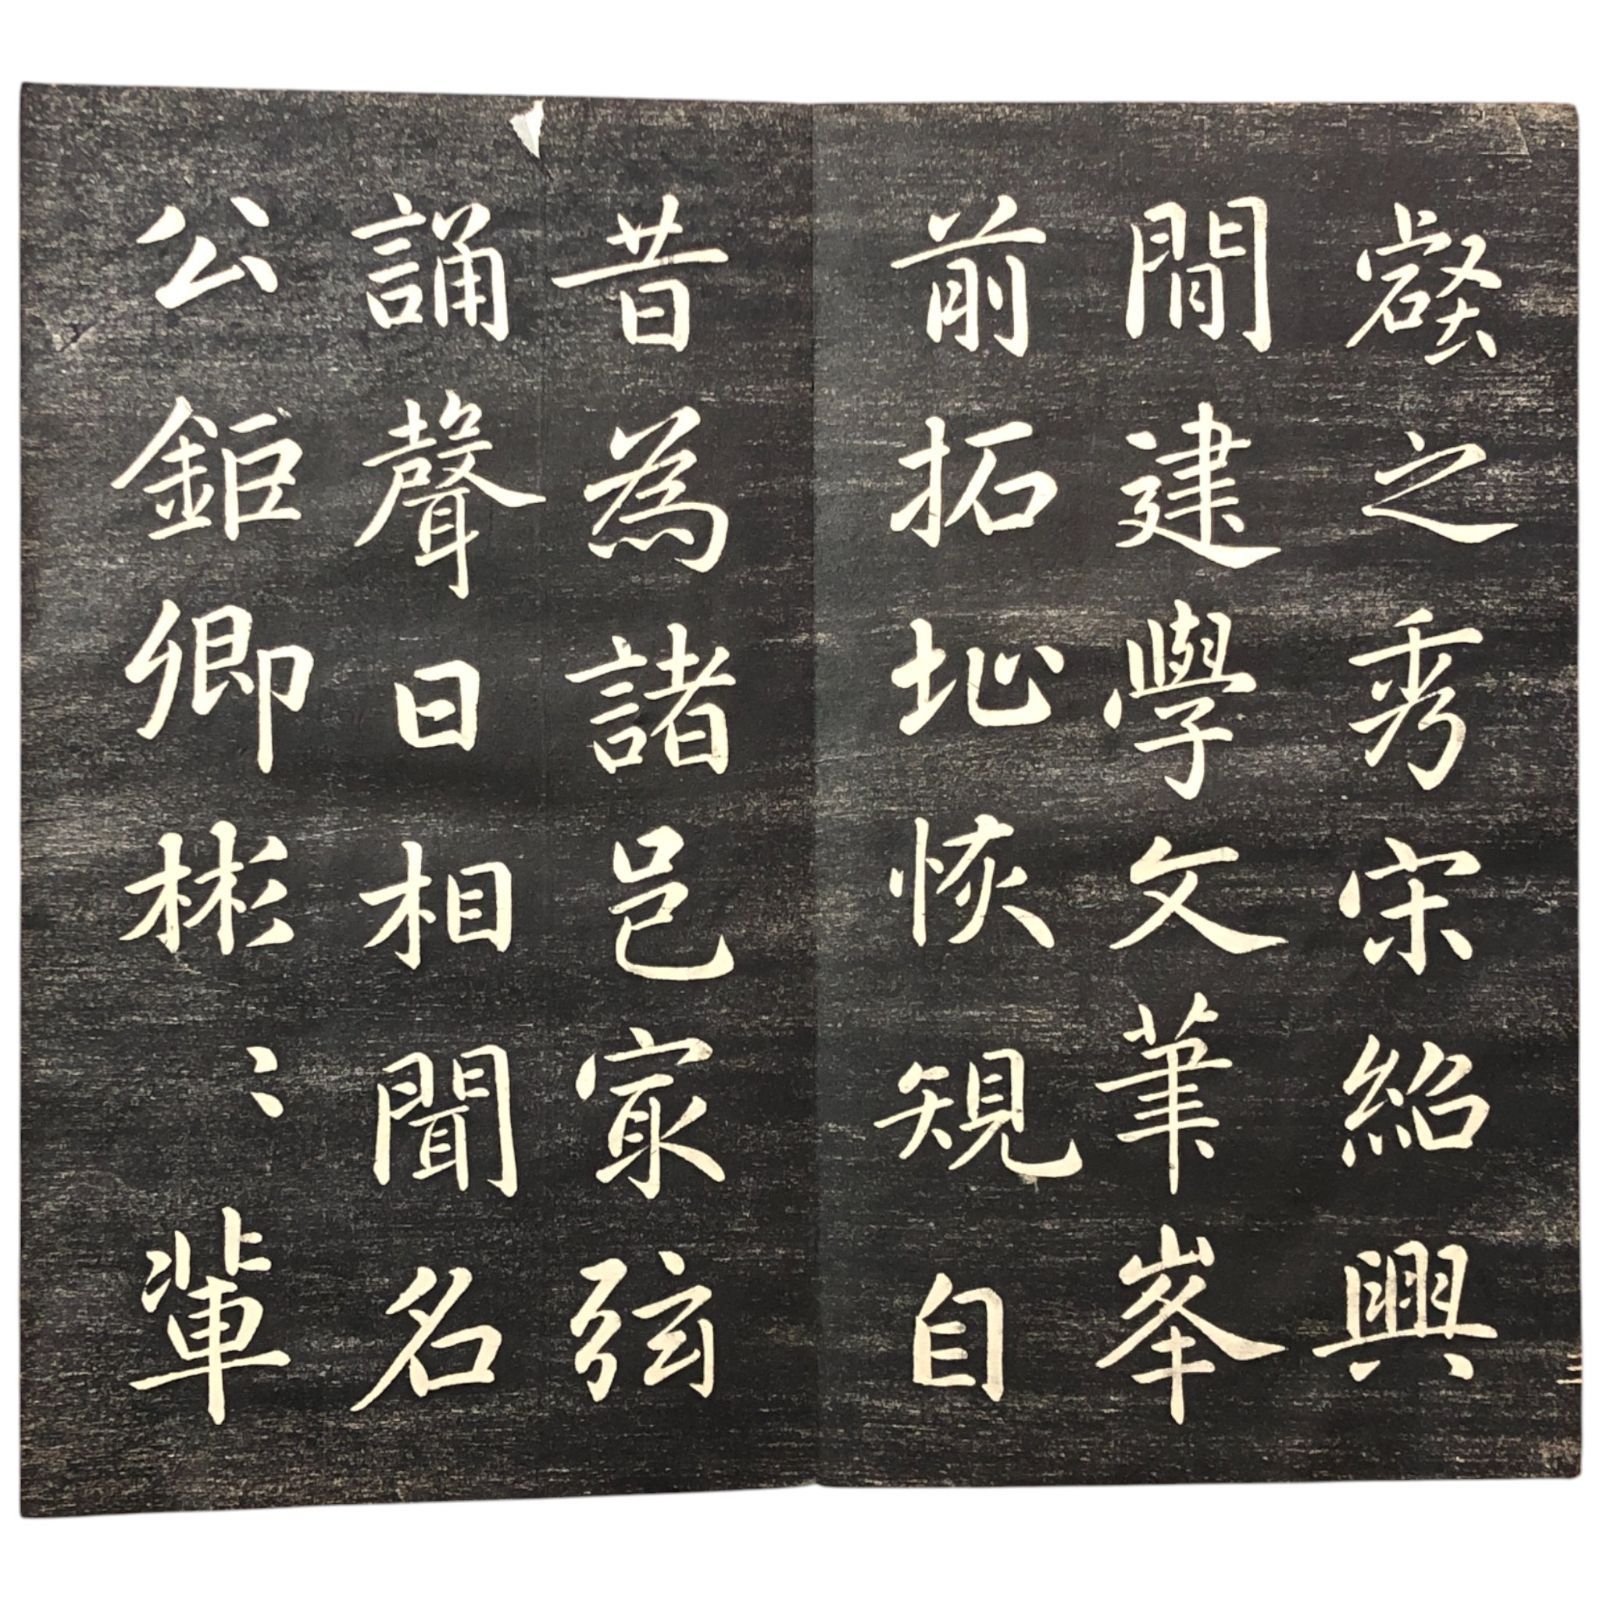 壑之秀宋紹興
間建學文筆峯
前拓址恢規自
昔為諸邑冣弦
誦聲日相聞名
公鉅卿彬〻輩